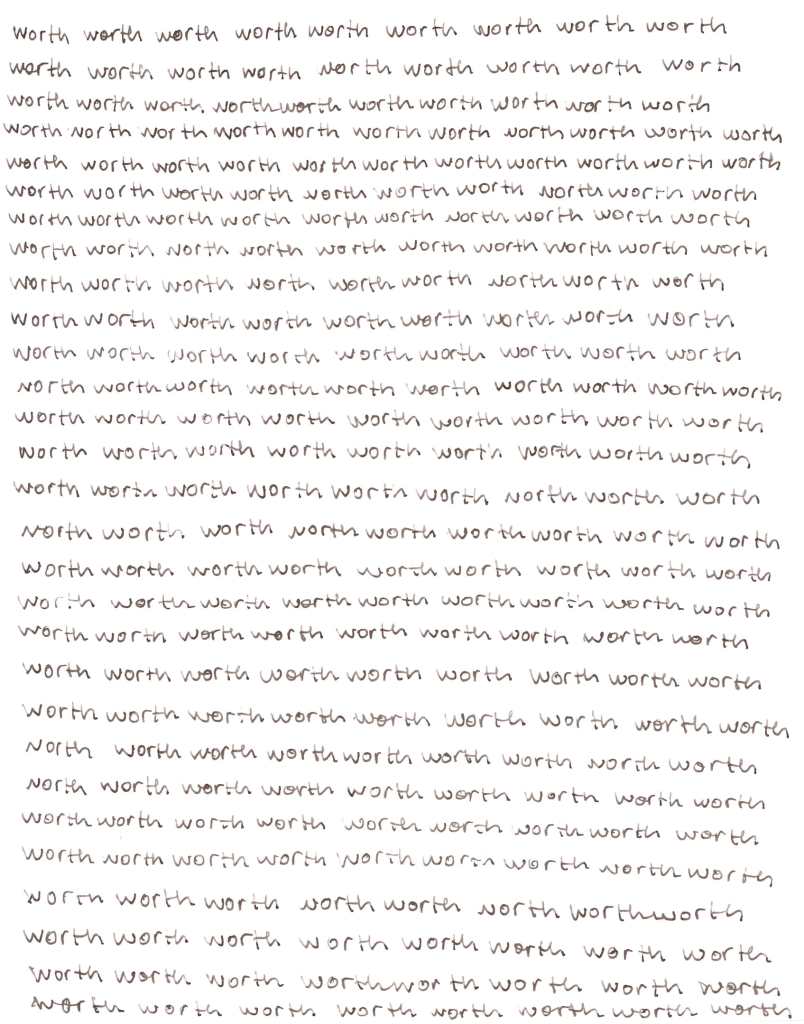 worth worth worth worth worth worth worth worth worth
worth worth worth worth worth worth worth worth worth
worth worth worth worth worth worth worth worth worth worth
worth worth worth worth worth worth worth worth worth worth worth
worth worth worth worth worth worth worth worth worth worth worth
worth worth worth worth worth worth worth worth worth worth
worth worth worth worth worth worth worth worth worth worth
worth worth worth worth worth worth worth worth worth worth
worth worth worth worth worth worth worth worth worth
worth worth worth worth worth worth worth worth worth
worth worth worth worth worth worth worth worth worth
worth worth worth worth worth worth worth worth worth worth
worth worth worth worth worth worth worth worth worth
worth worth worth worth worth worth worth worth worth
worth worth worth worth worth worth worth worth worth
worth worth worth worth worth worth worth worth worth
worth worth worth worth worth worth worth worth worth
worth worth worth worth worth worth worth worth worth
worth worth worth worth worth worth worth worth worth
worth worth worth worth worth worth worth worth worth
worth worth worth worth worth worth worth worth worth
worth worth worth worth worth worth worth worth worth
worth worth worth worth worth worth worth worth worth
worth worth worth worth worth worth worth worth worth
worth worth worth worth worth worth worth worth worth
worth worth worth worth worth worth worth worth
worth worth worth worth worth worth worth worth
worth worth worth worth worth worth worth worth
worth worth worth worth worth worth worth worth